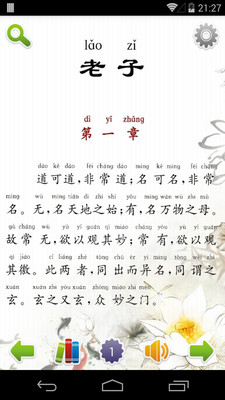 21:27
lǎo zǐ
老子
dì yī zhāng
第一章
dào kě dào fēi cháng dào míng kě míng fēi cháng
道可道,非常道;名可名,非常
míng wú míng tiān dì zhī shǐ yǒu míng wàn wù zhī mǔ
名。无,名天地之始;有,名万物之母。
gù cháng wú yù yǐ guān qí miào cháng yǒu yù yǐ guān
故常无,欲以观其妙;常有,欲以观
qí jiào cǐ liǎng zhě tóng chū ér yì míng tóng wèi zhī
其徼。此两者,同出而异名,同谓之
xuán xuán zhī yòu xuán zhòng miào zhī mén
玄。玄之又玄,众妙之门。
1